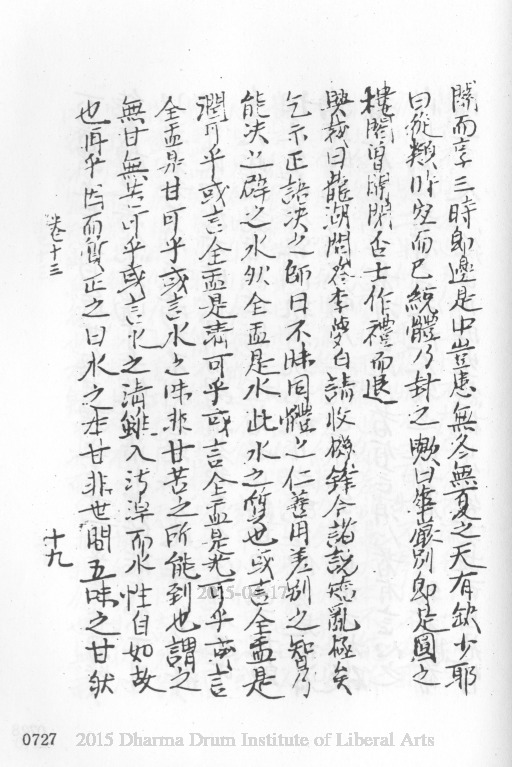 關而享三時即邊是中豈患無冬無夏之天有缺少耶
曰從類時空而已統體乃封之嗽曰華嚴別即是圓之
樓閣曾關閉否士作禮而退
與茲曰龍湖問答李夢白請收機鋒今諸說淆亂極矣
乞示正語決之師曰不昧同體之仁善用差別之智乃
能決之辟之水然全盂是水此水之質也或言全盂是
濕可乎或言全盂是清可乎或言全盂是光可乎或言
全盂是甘可乎或言水之味非甘苦之所能到也謂之
無甘無苦可乎或言水之清雖入濁而水性自如故
也再乎因而質正之曰水之本甘非世間五味之甘然
卷十三
十九
2015-03-17
0727 2015 Dharma Drum Institute of Liberal Arts